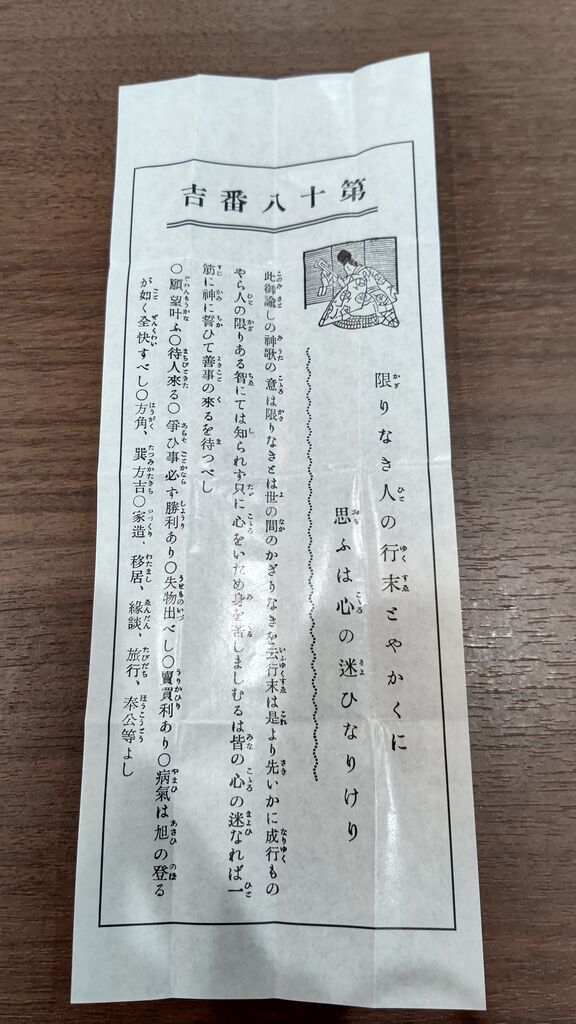 第十八番吉
限りなき人の行末とやかくに
思ふは心の迷ひなりけり
此御諭しの神歌の意は限りなきとは世の間のかぎりなきを云行末は是より先いかに成行もの
やら人の限りある智にては知られず只に心をいため身を苦しましむるは皆の心の迷なれば一
筋に神に誓ひて善事の來るを待つべし
〇願望叶ふ〇待人來る〇爭ひ事必ず勝利あり〇失物出べし〇賣買利あり〇病氣は旭の登る
が如く全快すべし〇方角、巽方吉〇家造、移居、緣談、旅行、奉公等よし